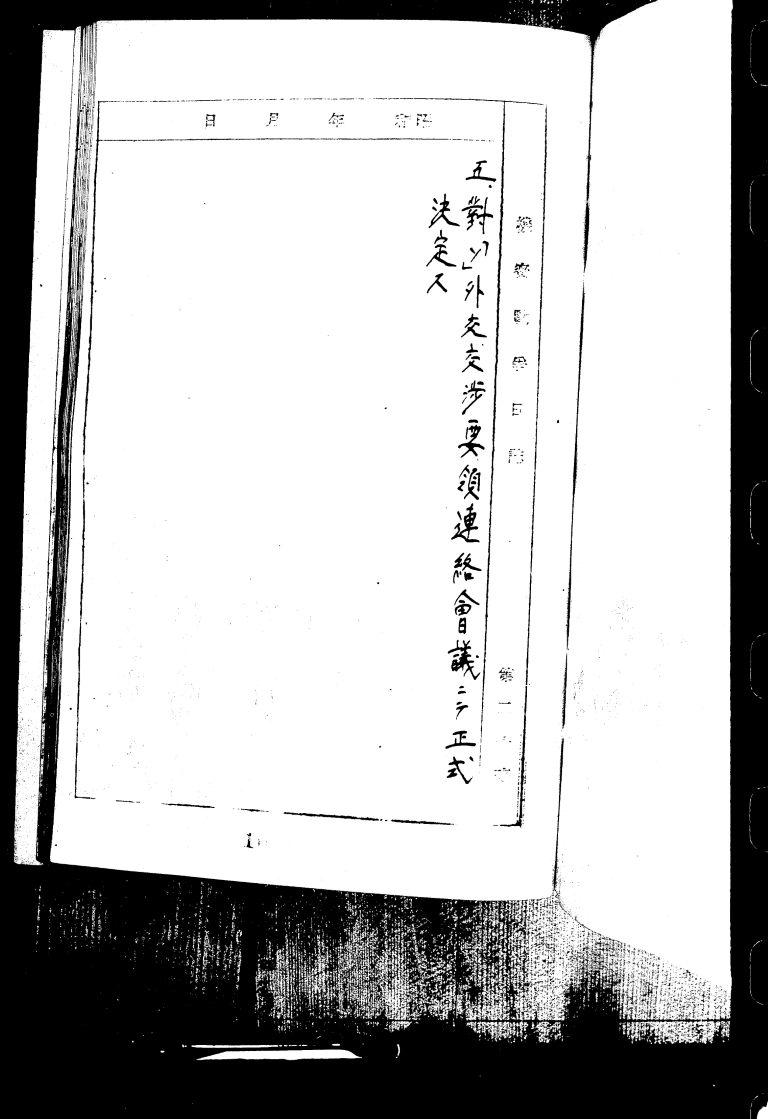 機密戰爭日誌
第二
昭和 年 月 日
五、對「ソ」外交交渉要領連絡會議ニテ正式
決定ス